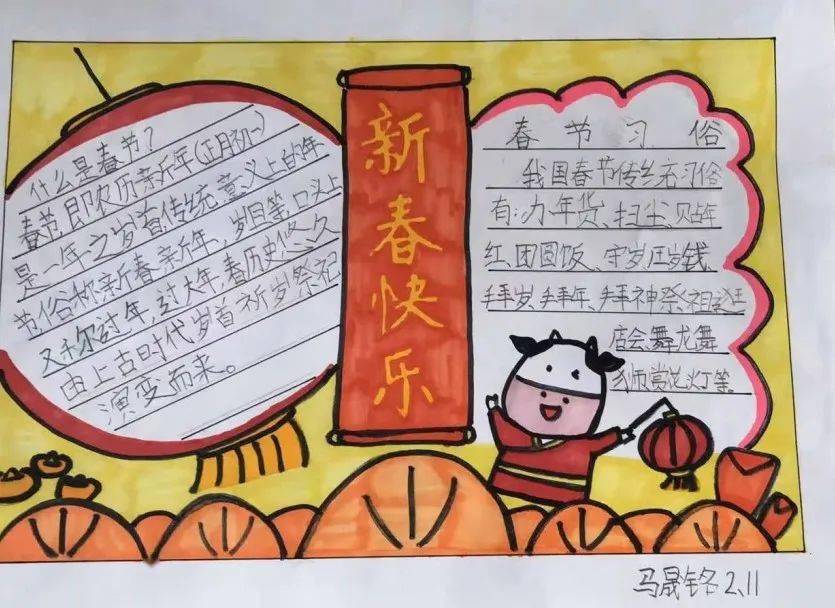 什么是春节?
春节,即农历亲新年(正月初一)
是一年之岁首传统意义上的年
节俗称亲新春亲新年,岁旦等,口义上
又称过年,过大年,春历史悠久
由上古时代岁首祈岁祭祀
演变而来。
新春快乐
春节习俗
我国春节传统习俗
有:办年货、扫尘、贴年
红、团圆饭、守岁压岁钱、
拜岁、拜年、拜神祭祖逛
店会舞龙舞
狮赏花灯等。
马晟铭 2.11